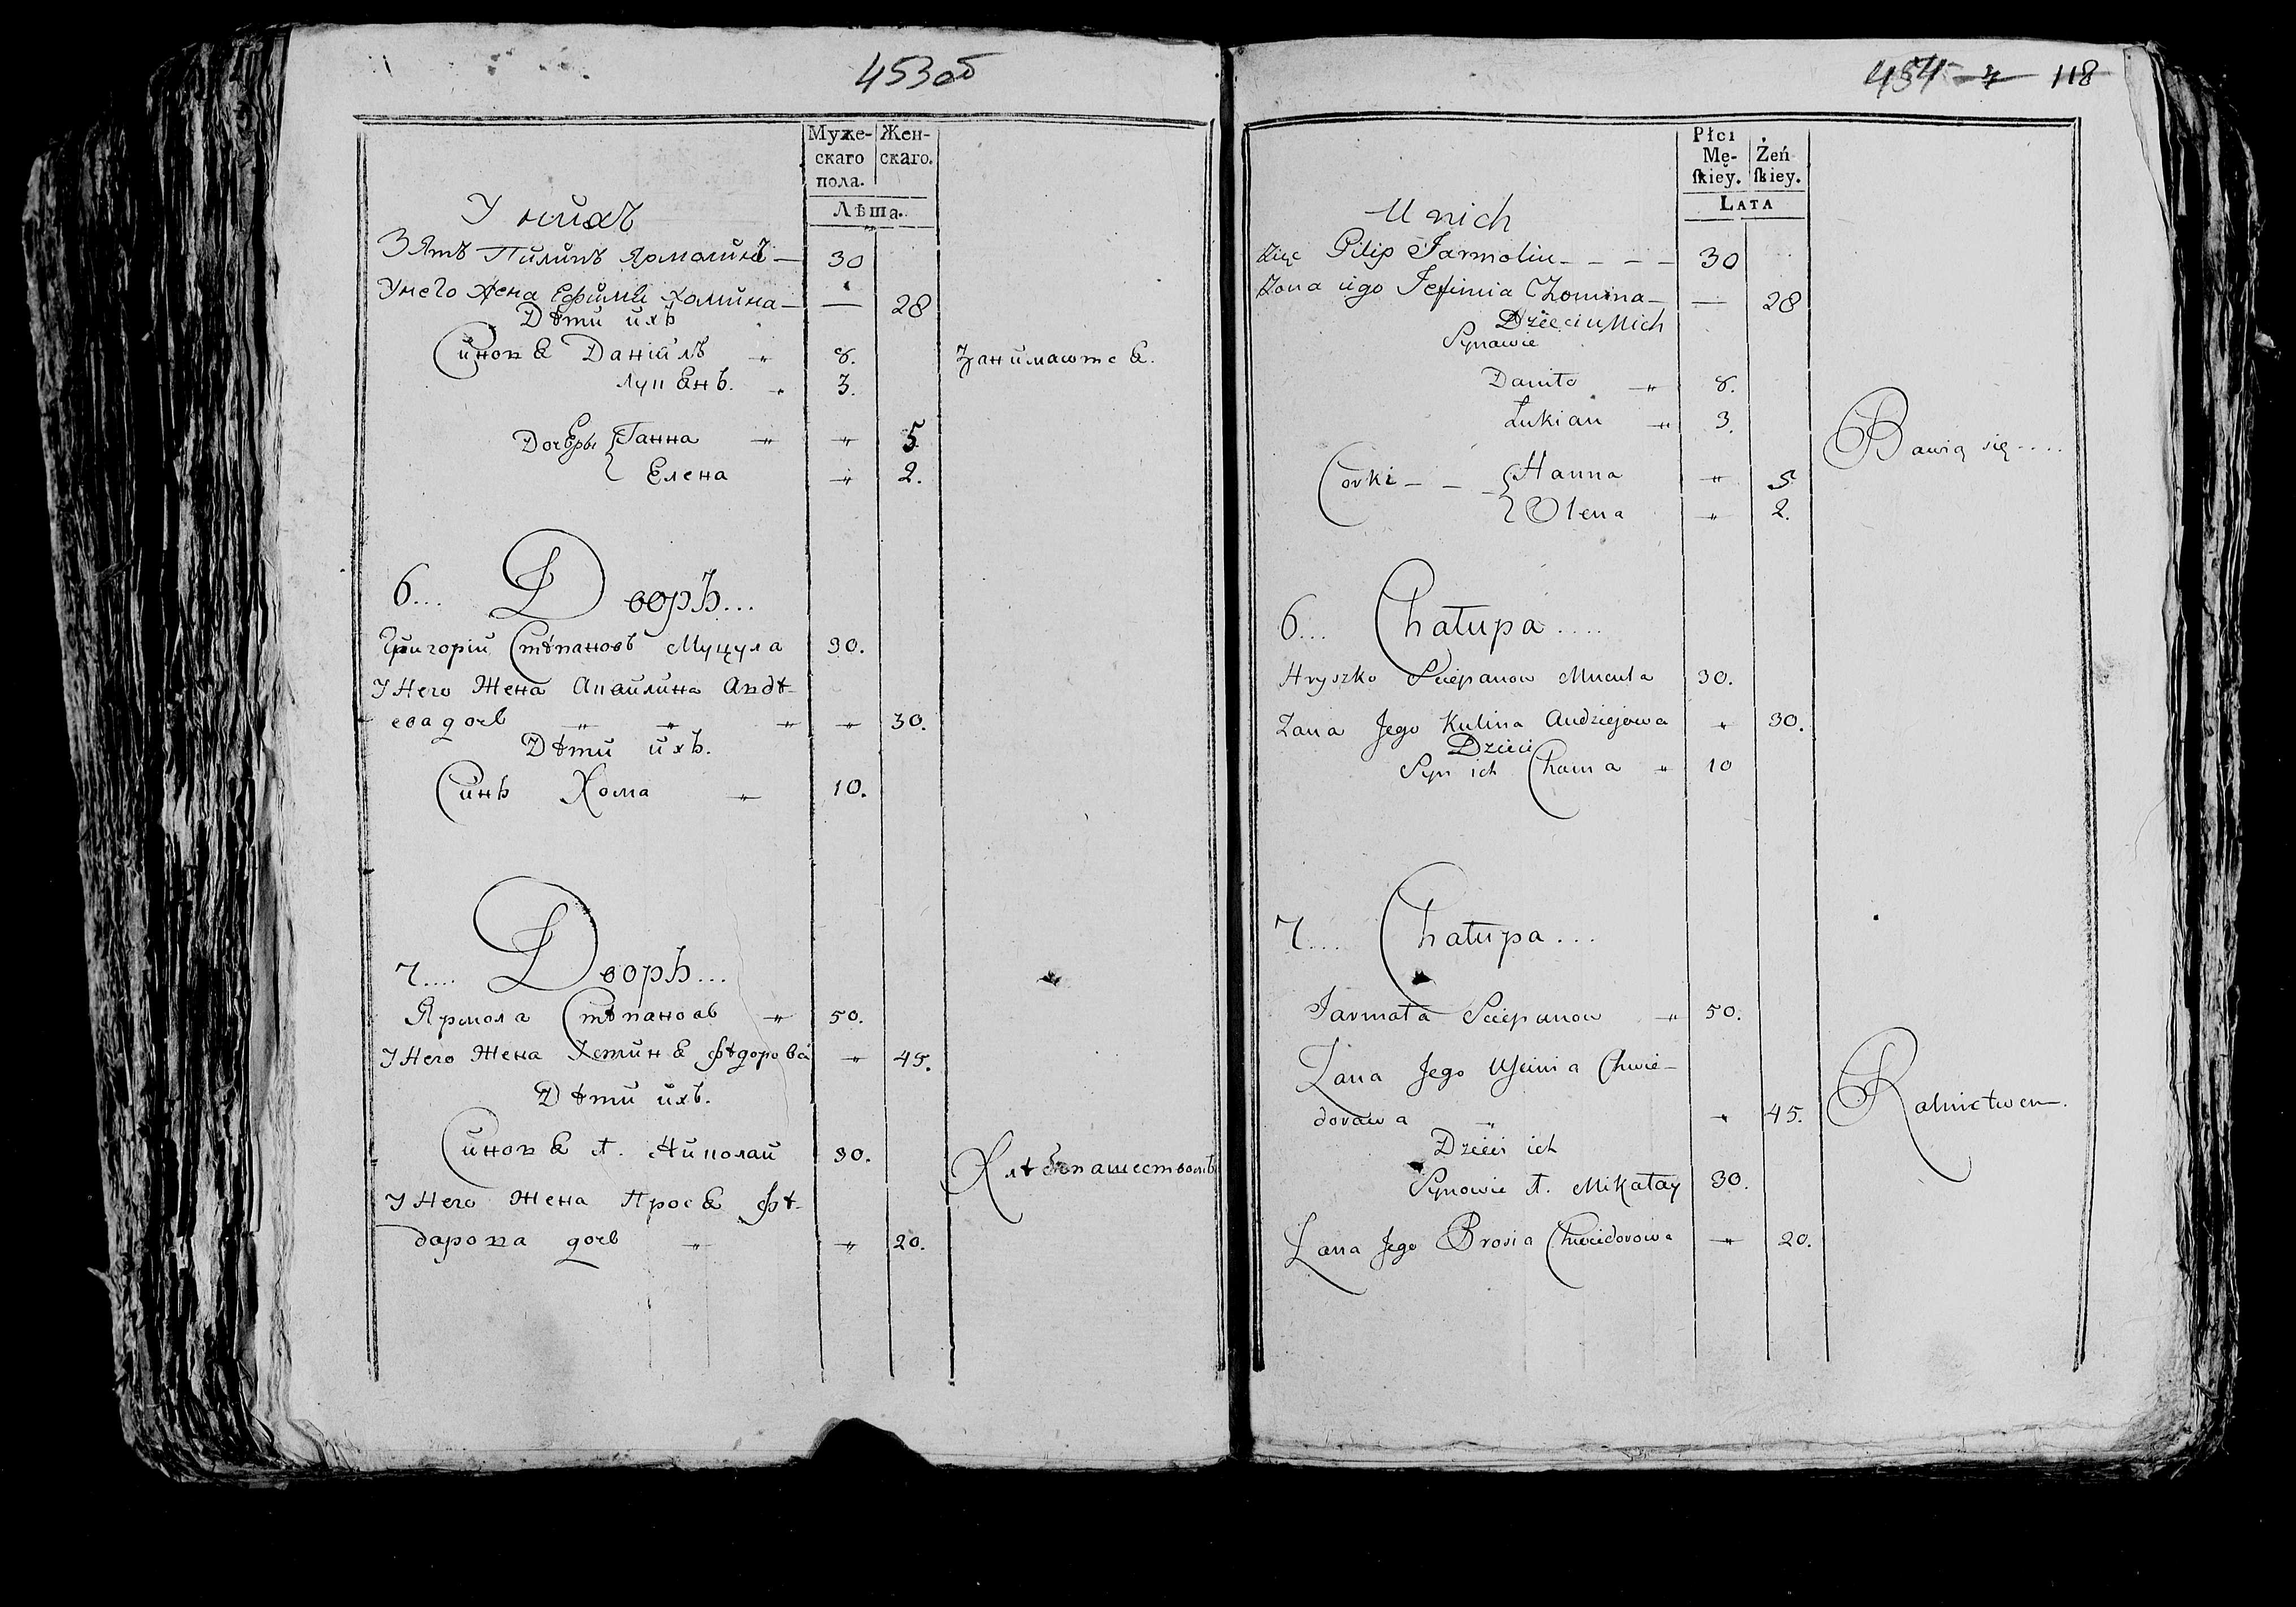 453 об
Муже-
скаго
пола.
Жен-
скаго.
Лѣта.
У нихъ
Зять Пилипъ Ярмолинъ — 30
У него жена Ефимия Хомина — — 28
Дѣти ихъ
Синовя Данiилъ " 8.
Лукянъ. " 3.
Дочеры Ганна " " 5
Елена " 2.
Занимаются.
6... Дворъ...
Григорiй Стѣпановъ Муцула 30.
У Него Жена Акилина Андѣ-
ева дочь " " " " 30.
Дѣти ихъ.
Синъ Хома " 10.
7.... Дворъ...
Ярмола Стѣпановъ " 50.
У Него Жена Устиня Фѣдорова " 45.
Дѣти ихъ.
Синовя 1. Николай 30.
У Него Жена Прося Фѣ-
дорова дочь " " 20.
Хлѣбопашествомъ
454 118
Płci
Mę-
ſkiey.
Żeń
ſkiey.
LATA
U nich
Zięc Pilip Jarmolin - - - - 30
Zona iego Jefimia Chomina — — 28
Dzieci u Nich
Synowie
Daniło " 8.
Łukian " 3.
Corki - - - Hanna " 5
Olena " 2.
Bawią się ....
6... Chałupa ....
Hryszko Sciepanow Mucuła 30.
Zona Jego Kulina Andziejowa " 30.
Dzieci
Syn ich Choma " 10
7.... Chałupa ...
Jarmoła Sciepanow " 50.
Zona Jego Uscinia Chwie-
dorowa " " 45.
Dzieci ich
Synowie 1. Mikołay 30.
Zona Jego Prosia Chwiedorowa " 20.
Rolnictwem.